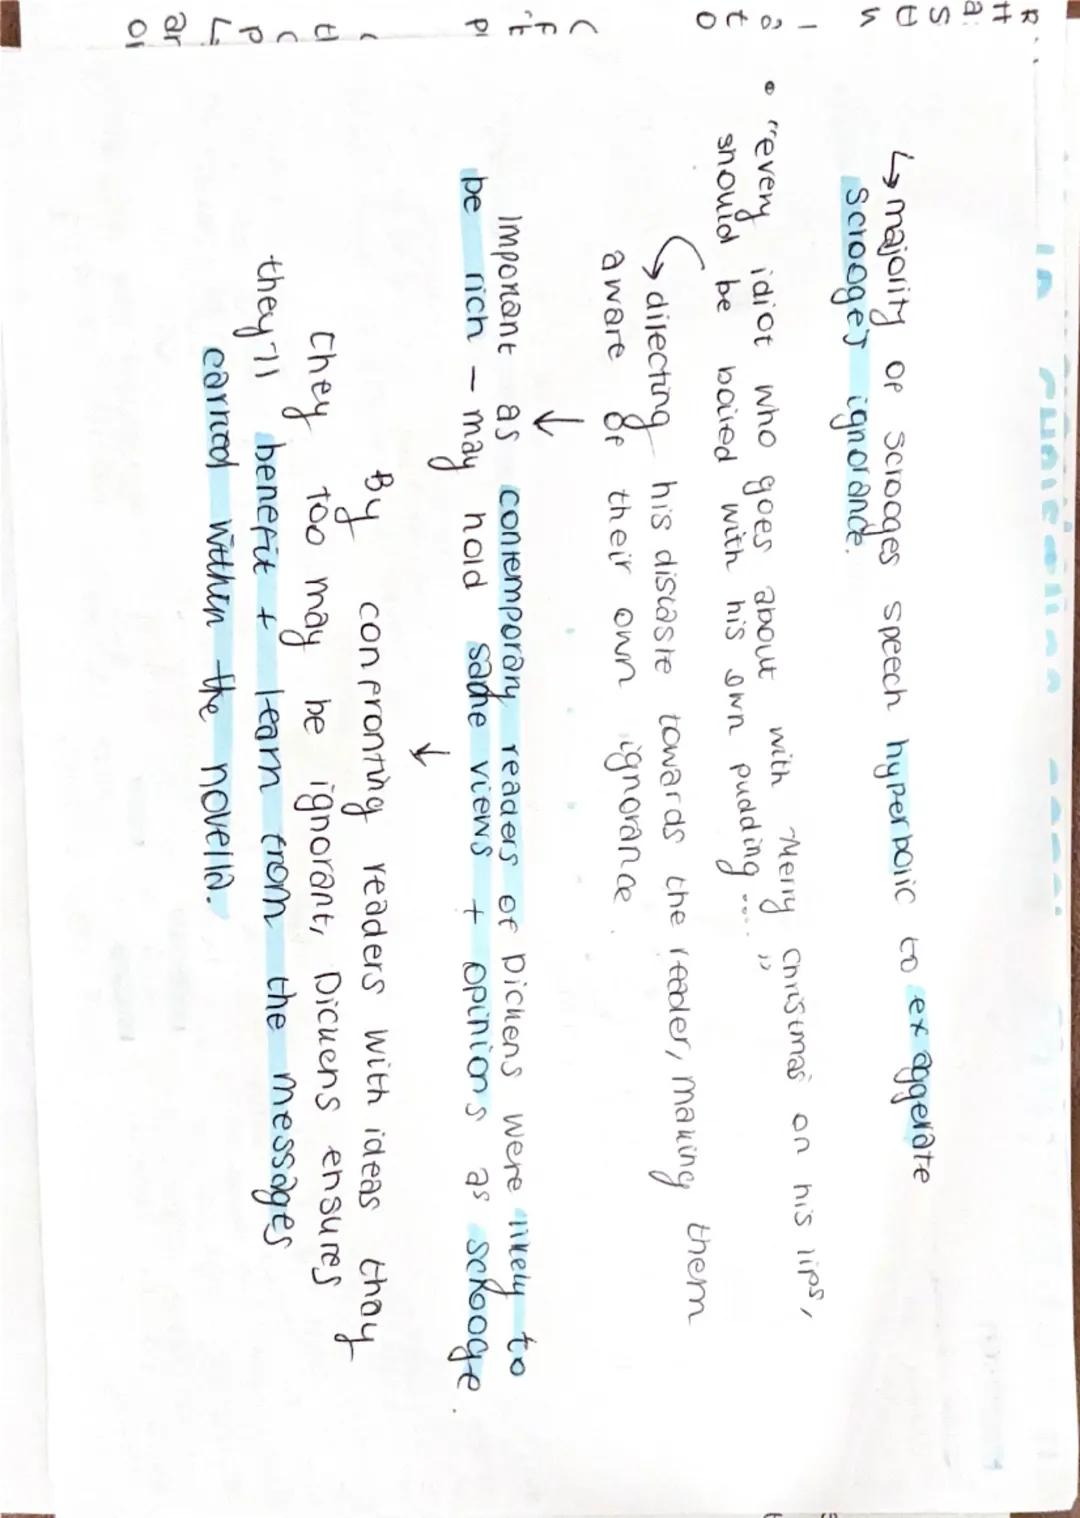 ↳ majority of scrooges speech hyperbolic to exaggerate
scrooges ignorance.
• "every idiot who goes about with 'Merry Christmas' on his lips,
should be boiled with his own pudding ...."
↳ directing his distaste towards the reader, making them
aware of their own ignorance
↓
Important as contemporary readers of Dickens were likely to
be rich - may hold same views + opinions as scrooge.
↓
By confronting readers with ideas thay
they too may be ignorant, Dickens ensures
they'll benefit + learn from the messages
carried within the novella.